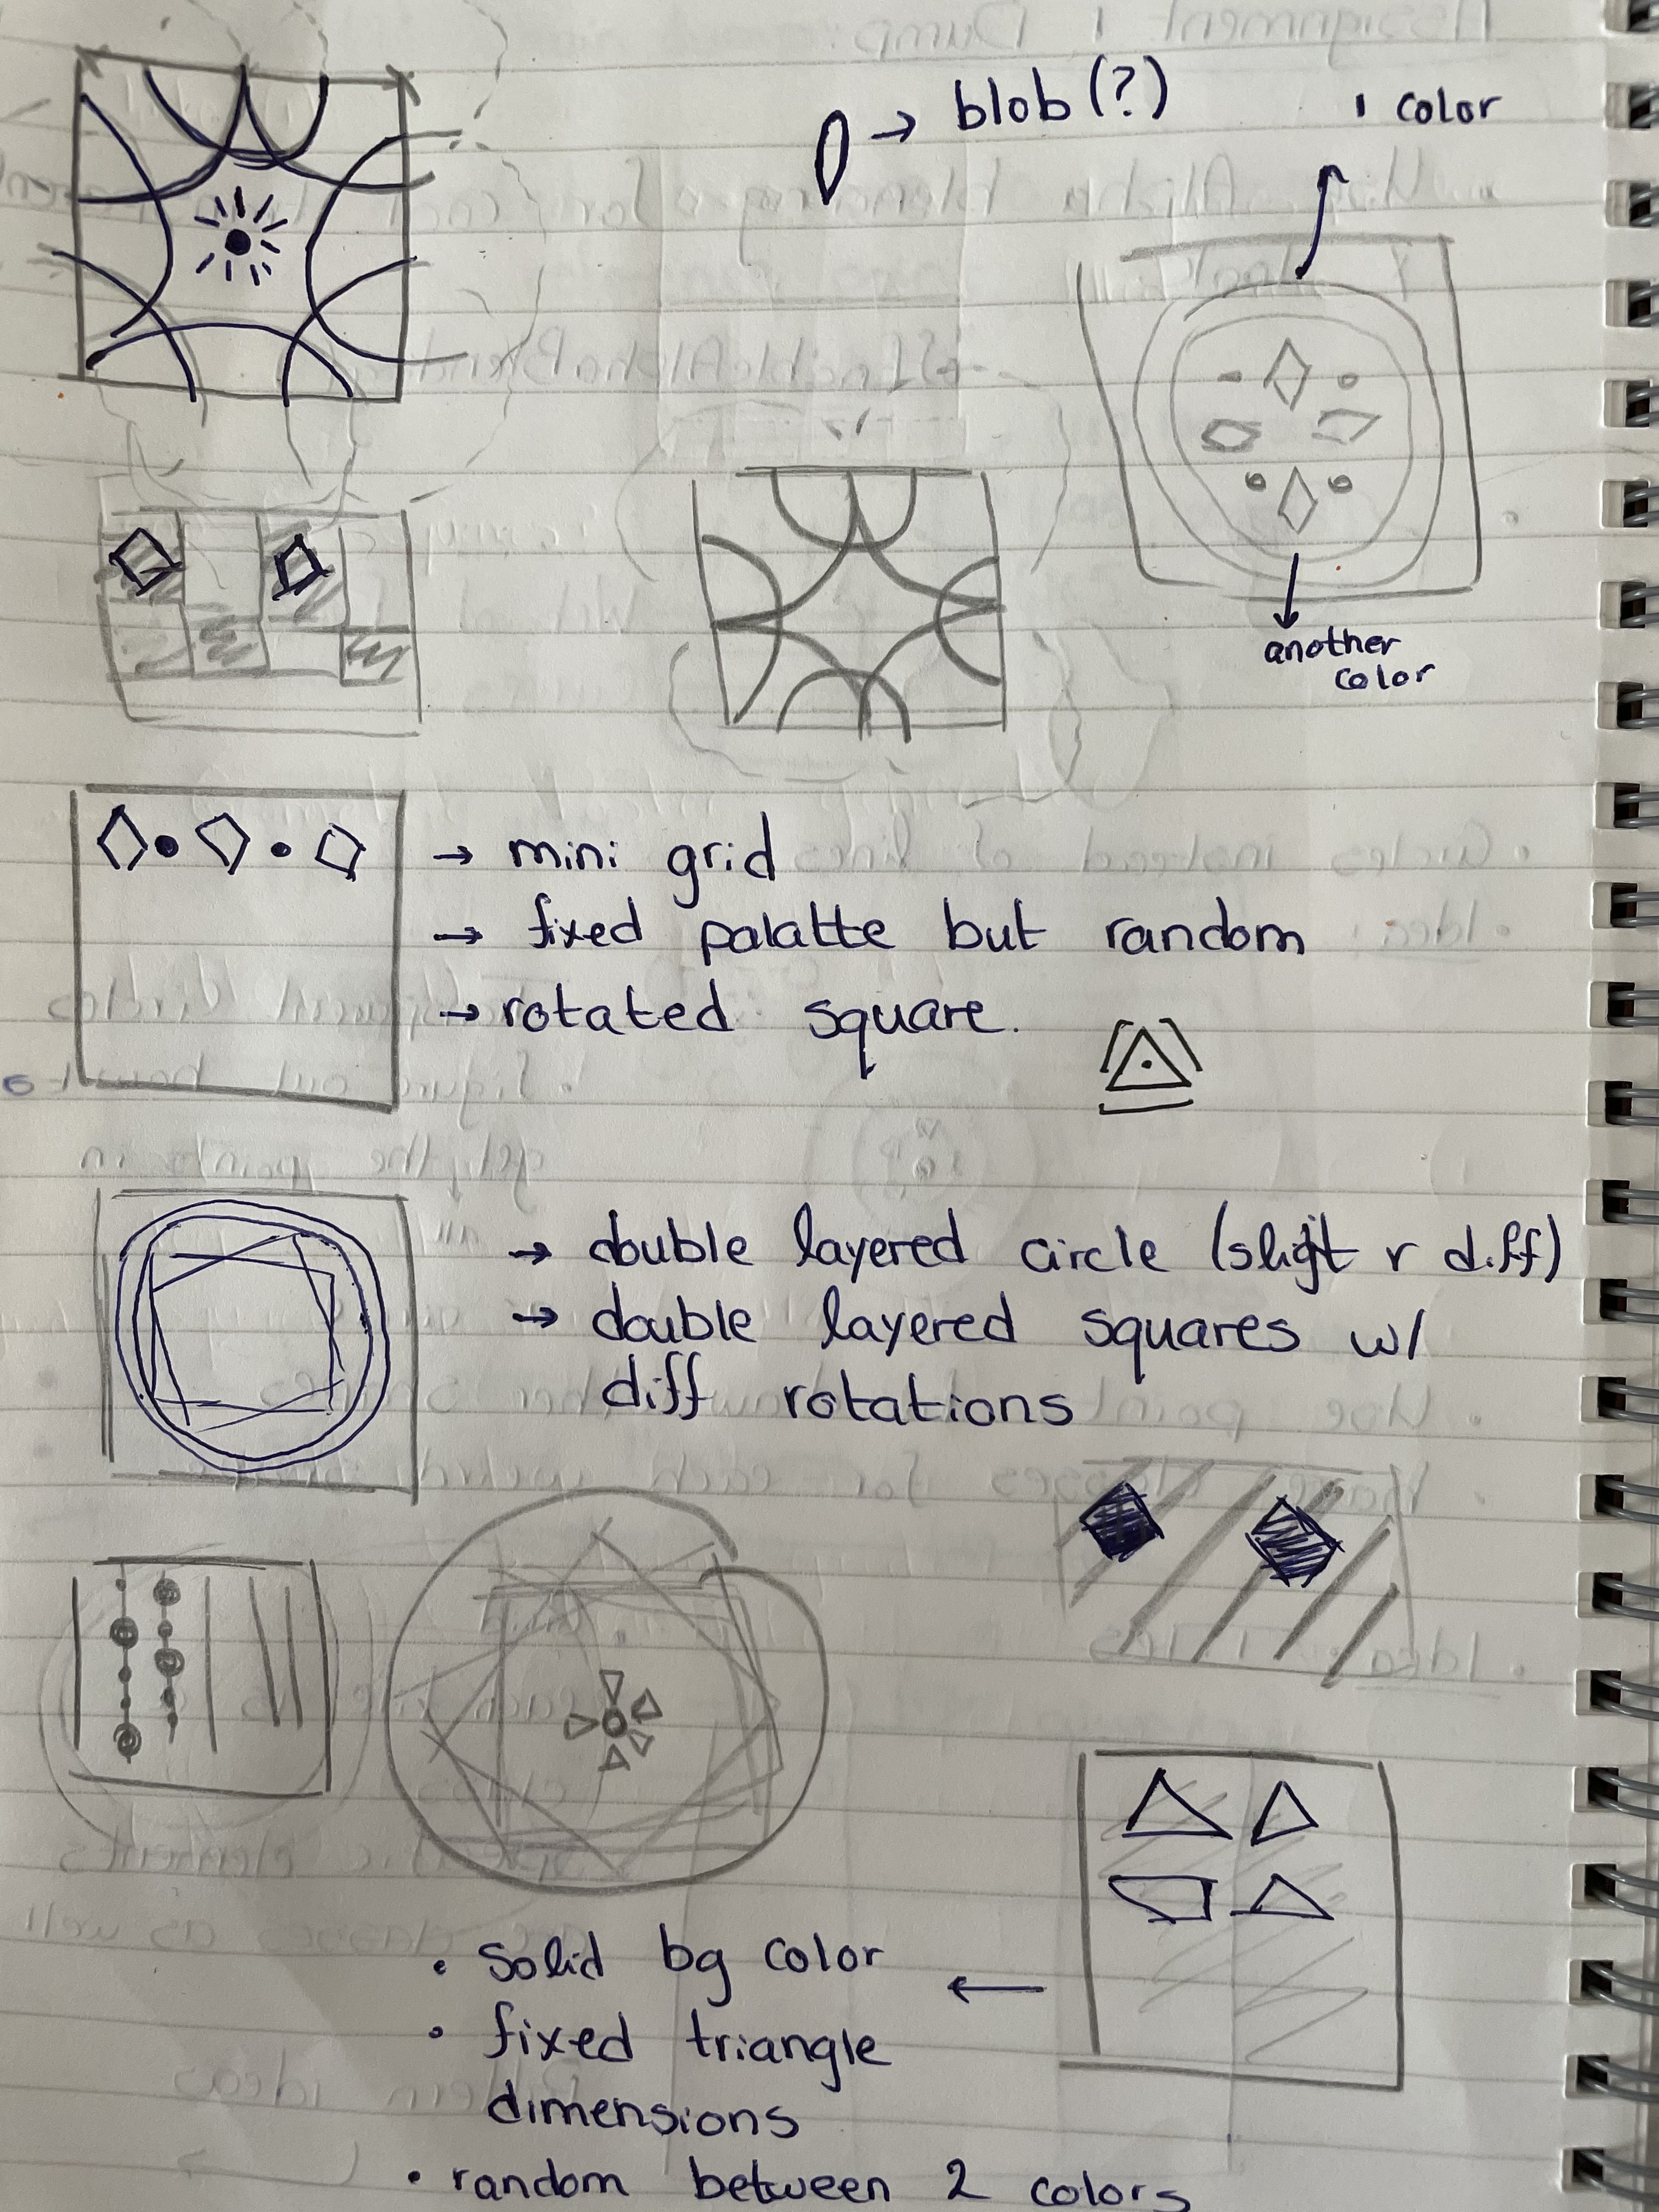 blob (?)
1 color
another
color
→ mini grid
→ fixed palatte but random
→ rotated square.
→ double layered circle (slight r diff)
→ double layered squares w/
diff rotations
• solid bg color
• fixed triangle
dimensions
• random between 2 colors